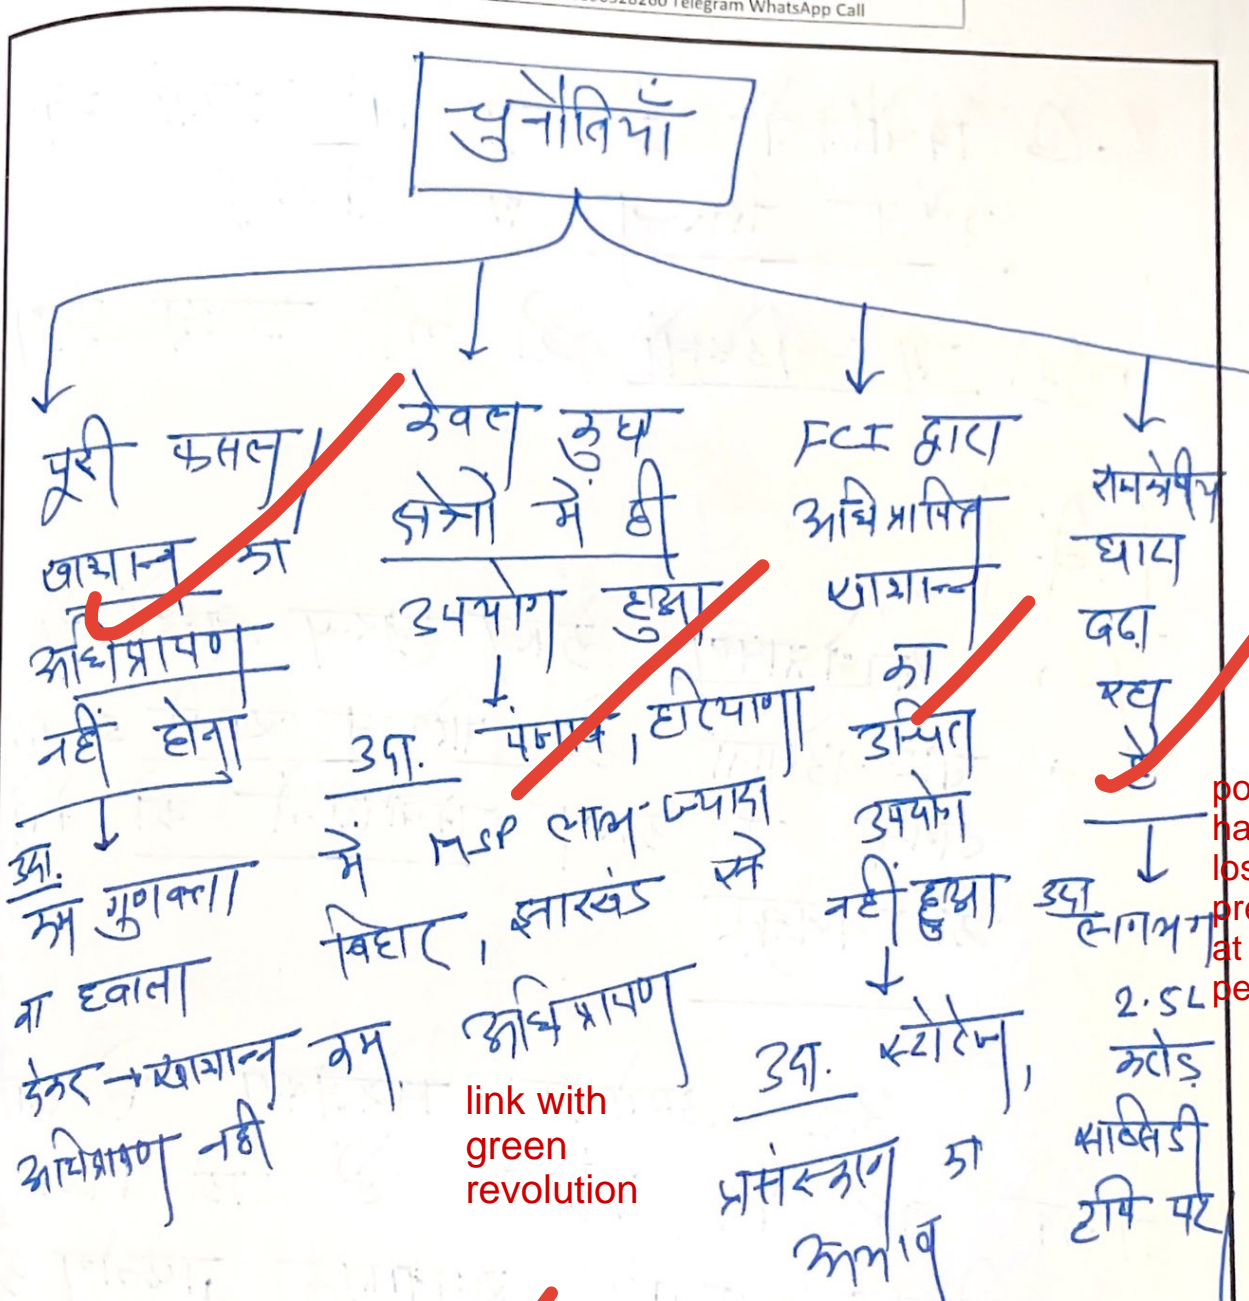 Telegram WhatsApp Call
चुनौतियाँ
पूरी फसल/
खाद्यान्न का
अधिप्रापण
नहीं होना
उदा.
कम गुणवत्ता
का हवाला
देकर → खाद्यान्न कम
अधिप्रापण नहीं
केवल कुछ
क्षेत्रों में ही
उपयोग हुआ
उदा. पंजाब, हरियाणा
में MSP लाभ ज्यादा
बिहार, झारखंड से
अधिप्रापण
link with
green
revolution
FCI द्वारा
अधिप्रापित
खाद्यान्न
का
उचित
उपयोग
नहीं हुआ
उदा. स्टोरेज,
प्रसंस्करण का
अभाव
राजकोषीय
घाटा
बढ़ा
रहा
है
उदा लगभग
2.5L
करोड़
सब्सिडी
कृषि पर